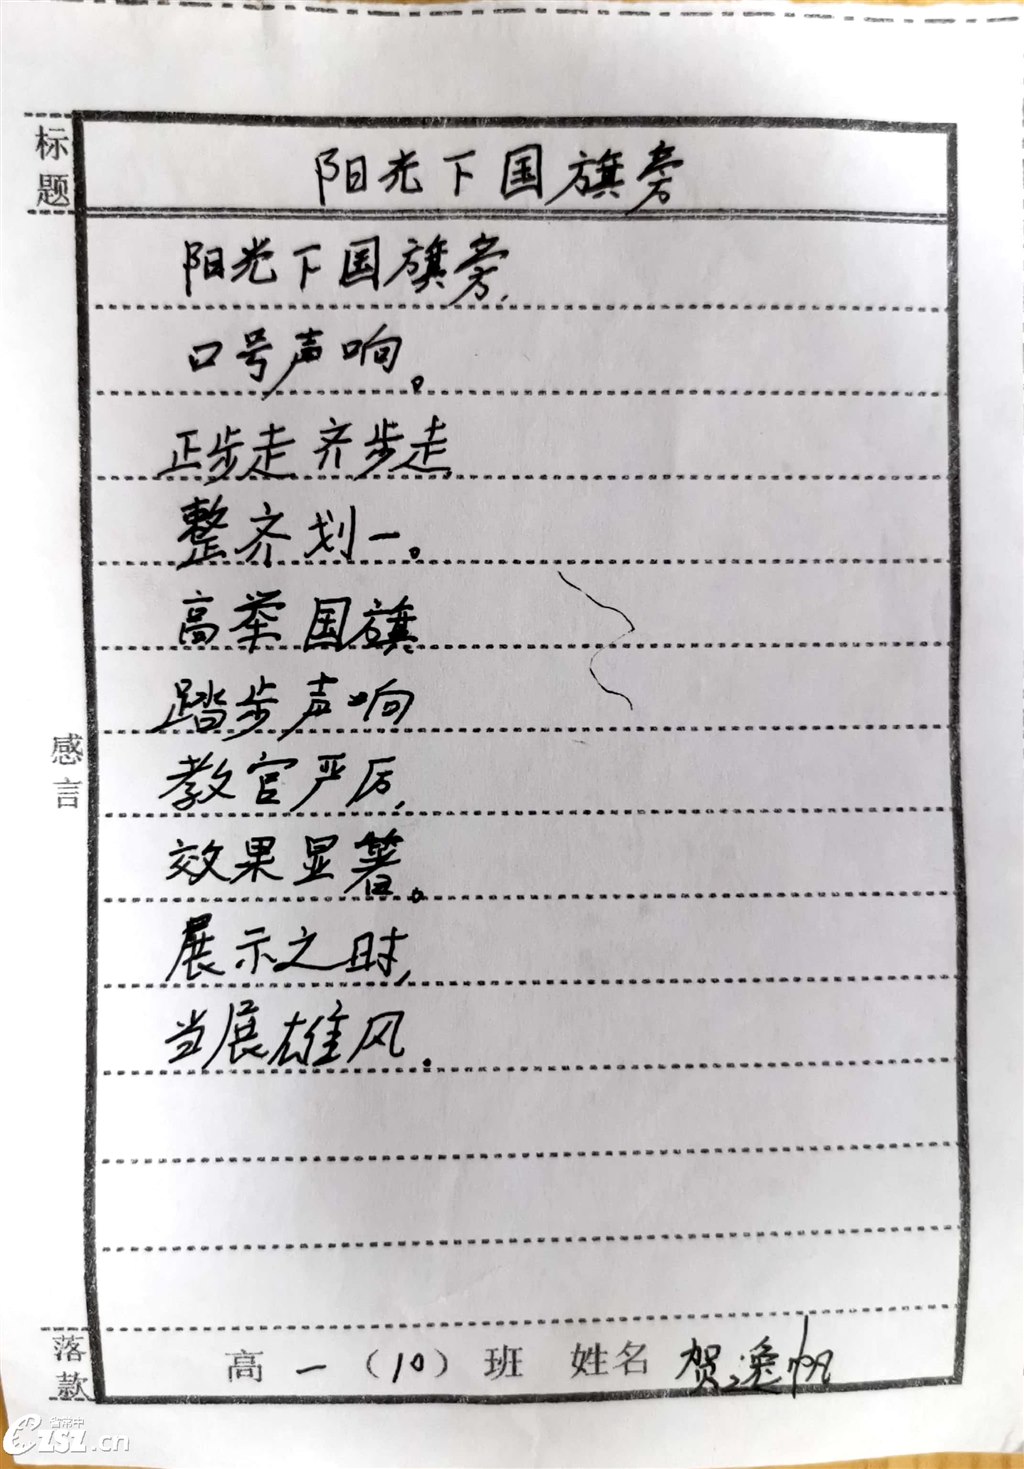 标题
阳光下国旗旁
阳光下国旗旁,
口号声响。
正步走 齐步走,
整齐划一。
高举国旗
踏步声响
教官严厉,
效果显著。
展示之时,
当展雄风。
感言
落款
高一（10）班 姓名 贺逸帆
省常中
CZ1SZ.cn